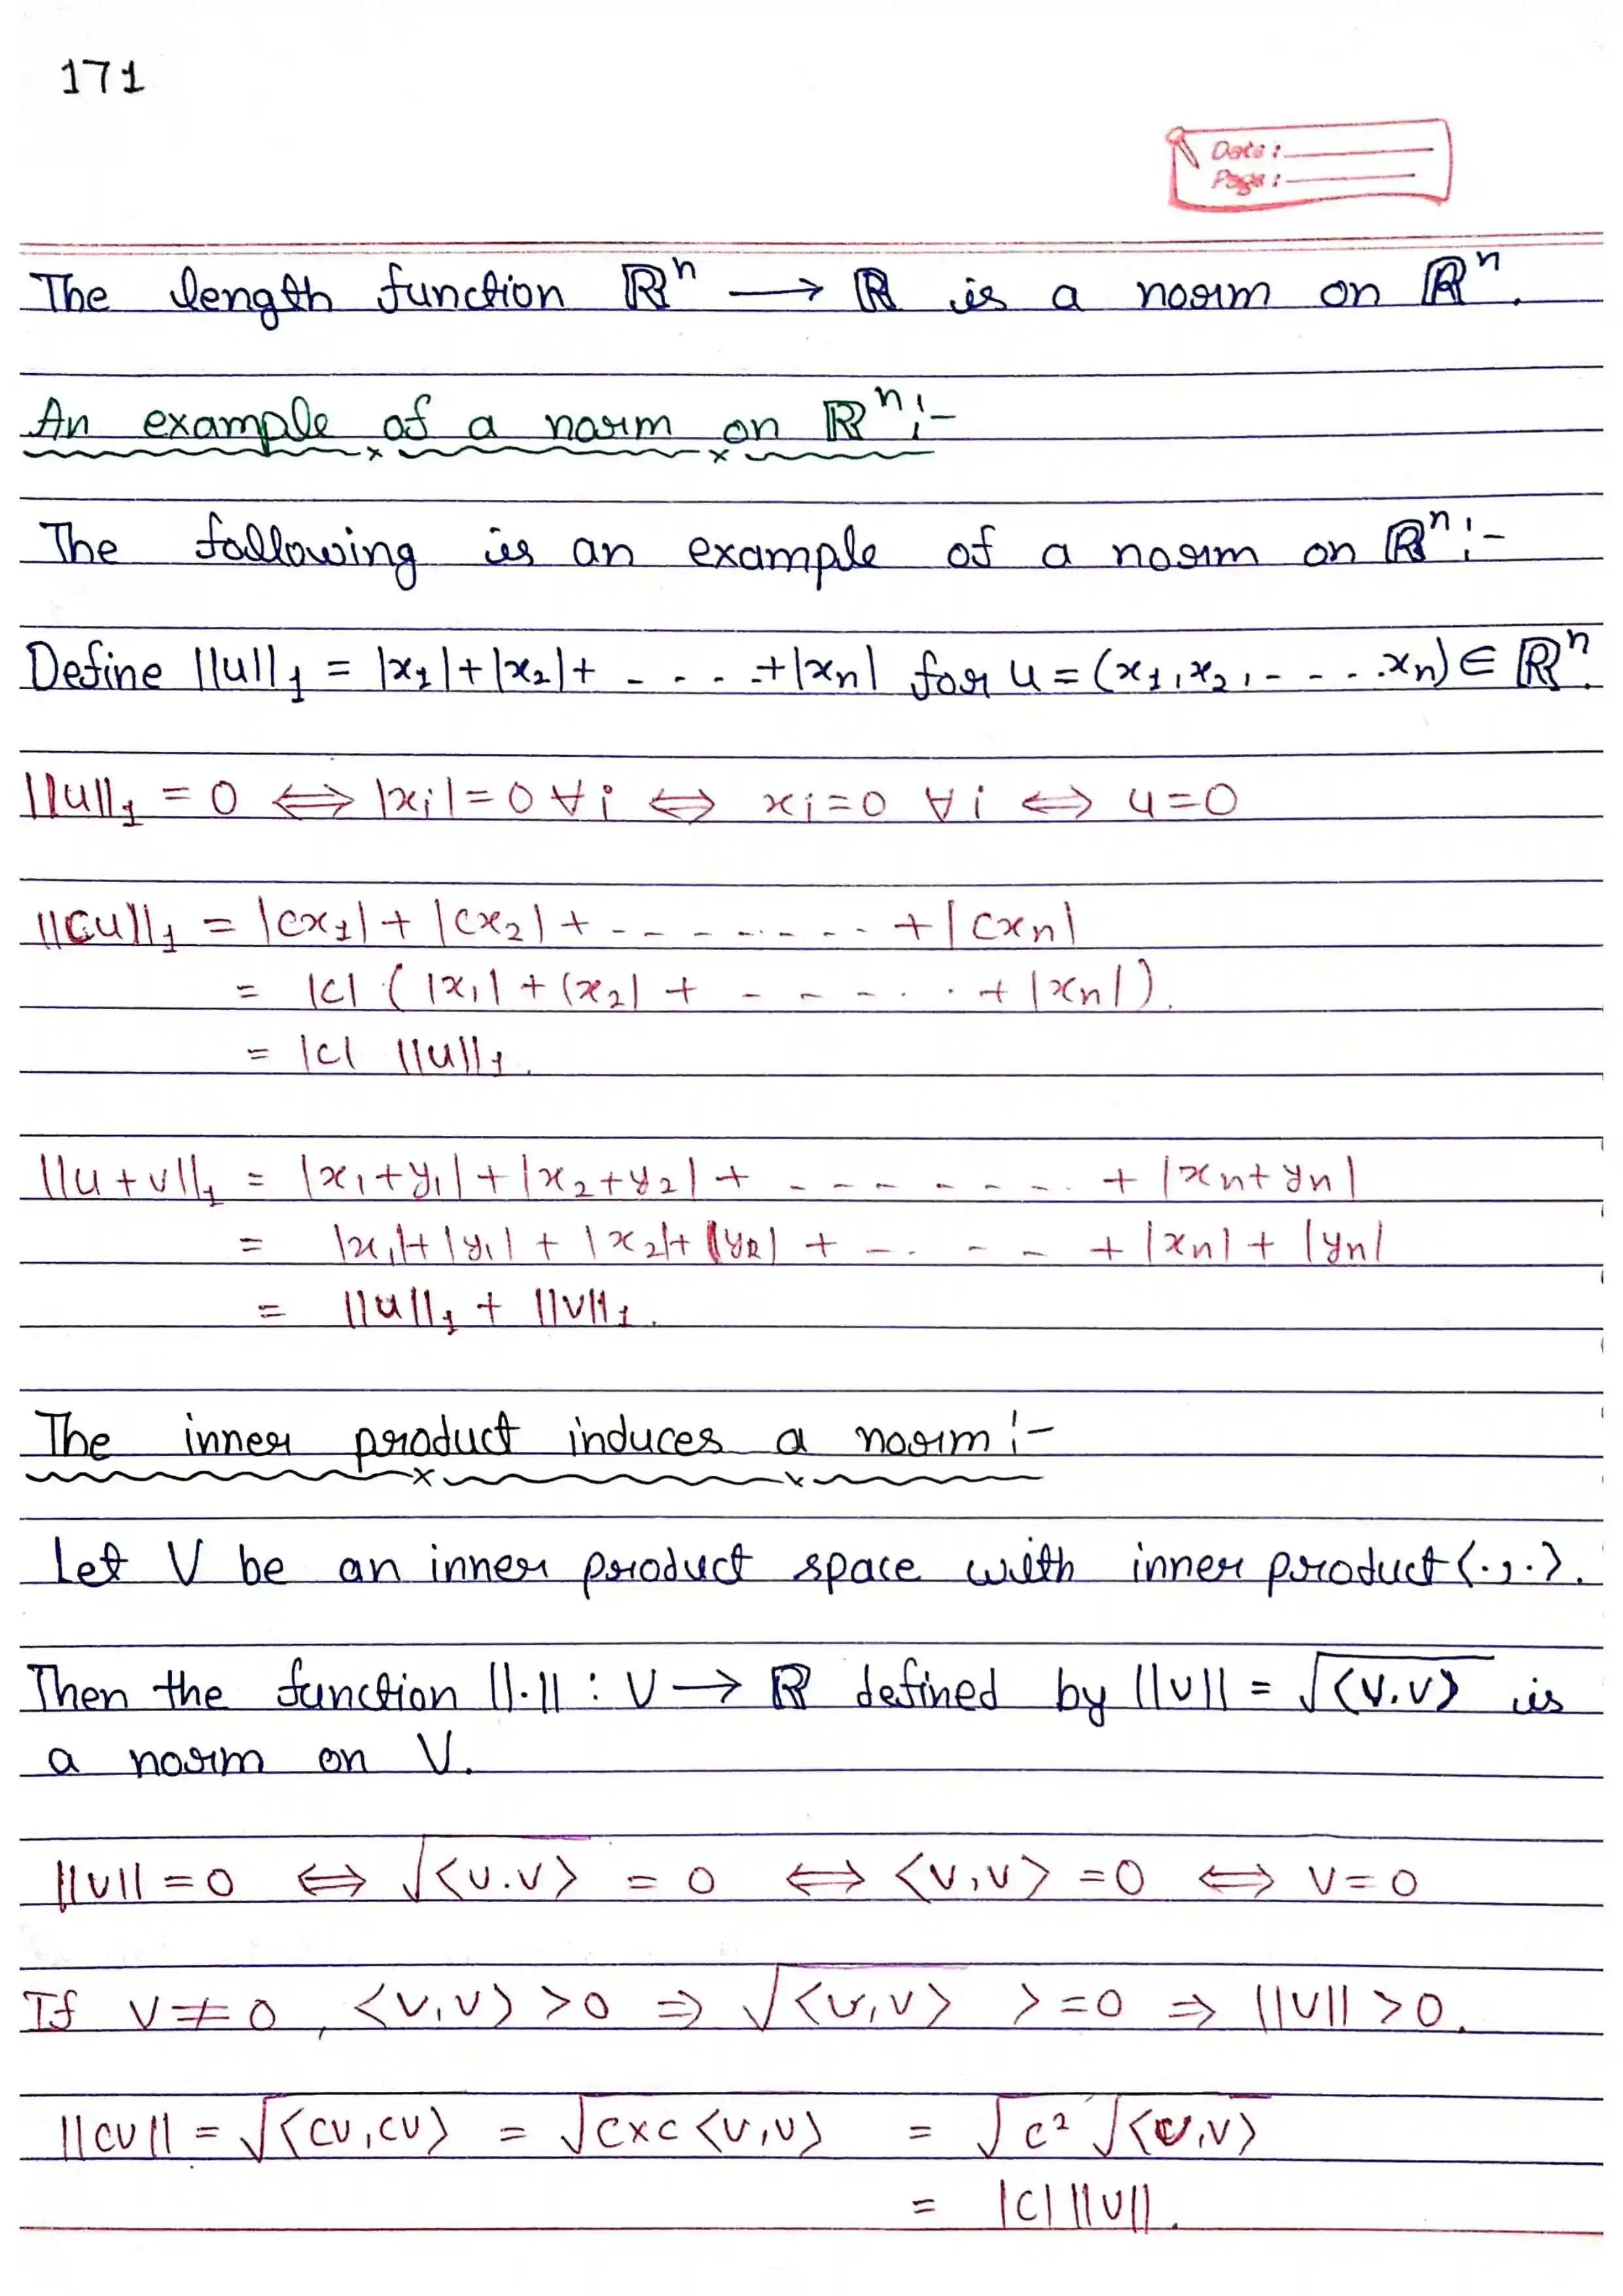 171
Date :
Page :
The length function ℝⁿ ⟶ ℝ is a norm on ℝⁿ.
An example of a norm on ℝⁿ :-
The following is an example of a norm on ℝⁿ :-
Define ||u||₁ = |x₁|+|x₂|+ - - - - +|xn| for u = (x₁, x₂, - - - - xn) ∈ ℝⁿ.
||u||₁ = 0 ⟺ |xi| = 0 ∀ i ⟺ xi = 0 ∀ i ⟺ u = 0
||cu||₁ = |cx₁| + |cx₂| + - - - - - - - - + |cxn|
= |c| ( |x₁| + |x₂| + - - - - - + |xn| ).
= |c| ||u||₁.
||u+v||₁ = |x₁+y₁| + |x₂+y₂| + - - - - - - - - + |xn+yn|
= |x₁|+|y₁| + |x₂|+|y₂| + - - - - + |xn| + |yn|
= ||u||₁ + ||v||₁.
The inner product induces a norm :-
Let V be an inner product space with inner product ⟨.,.⟩.
Then the function ||.|| : V ⟶ ℝ defined by ||v|| = √⟨v.v⟩ is
a norm on V.
||v|| = 0 ⟺ √⟨v.v⟩ = 0 ⟺ ⟨v,v⟩ = 0 ⟺ v = 0
If v ≠ 0, ⟨v,v⟩ > 0 ⇒ √⟨v,v⟩ >= 0 ⇒ ||v|| > 0.
||cv|| = √⟨cv,cv⟩ = √c×c ⟨v,v⟩ = √c² √⟨v,v⟩
= |c| ||v||.